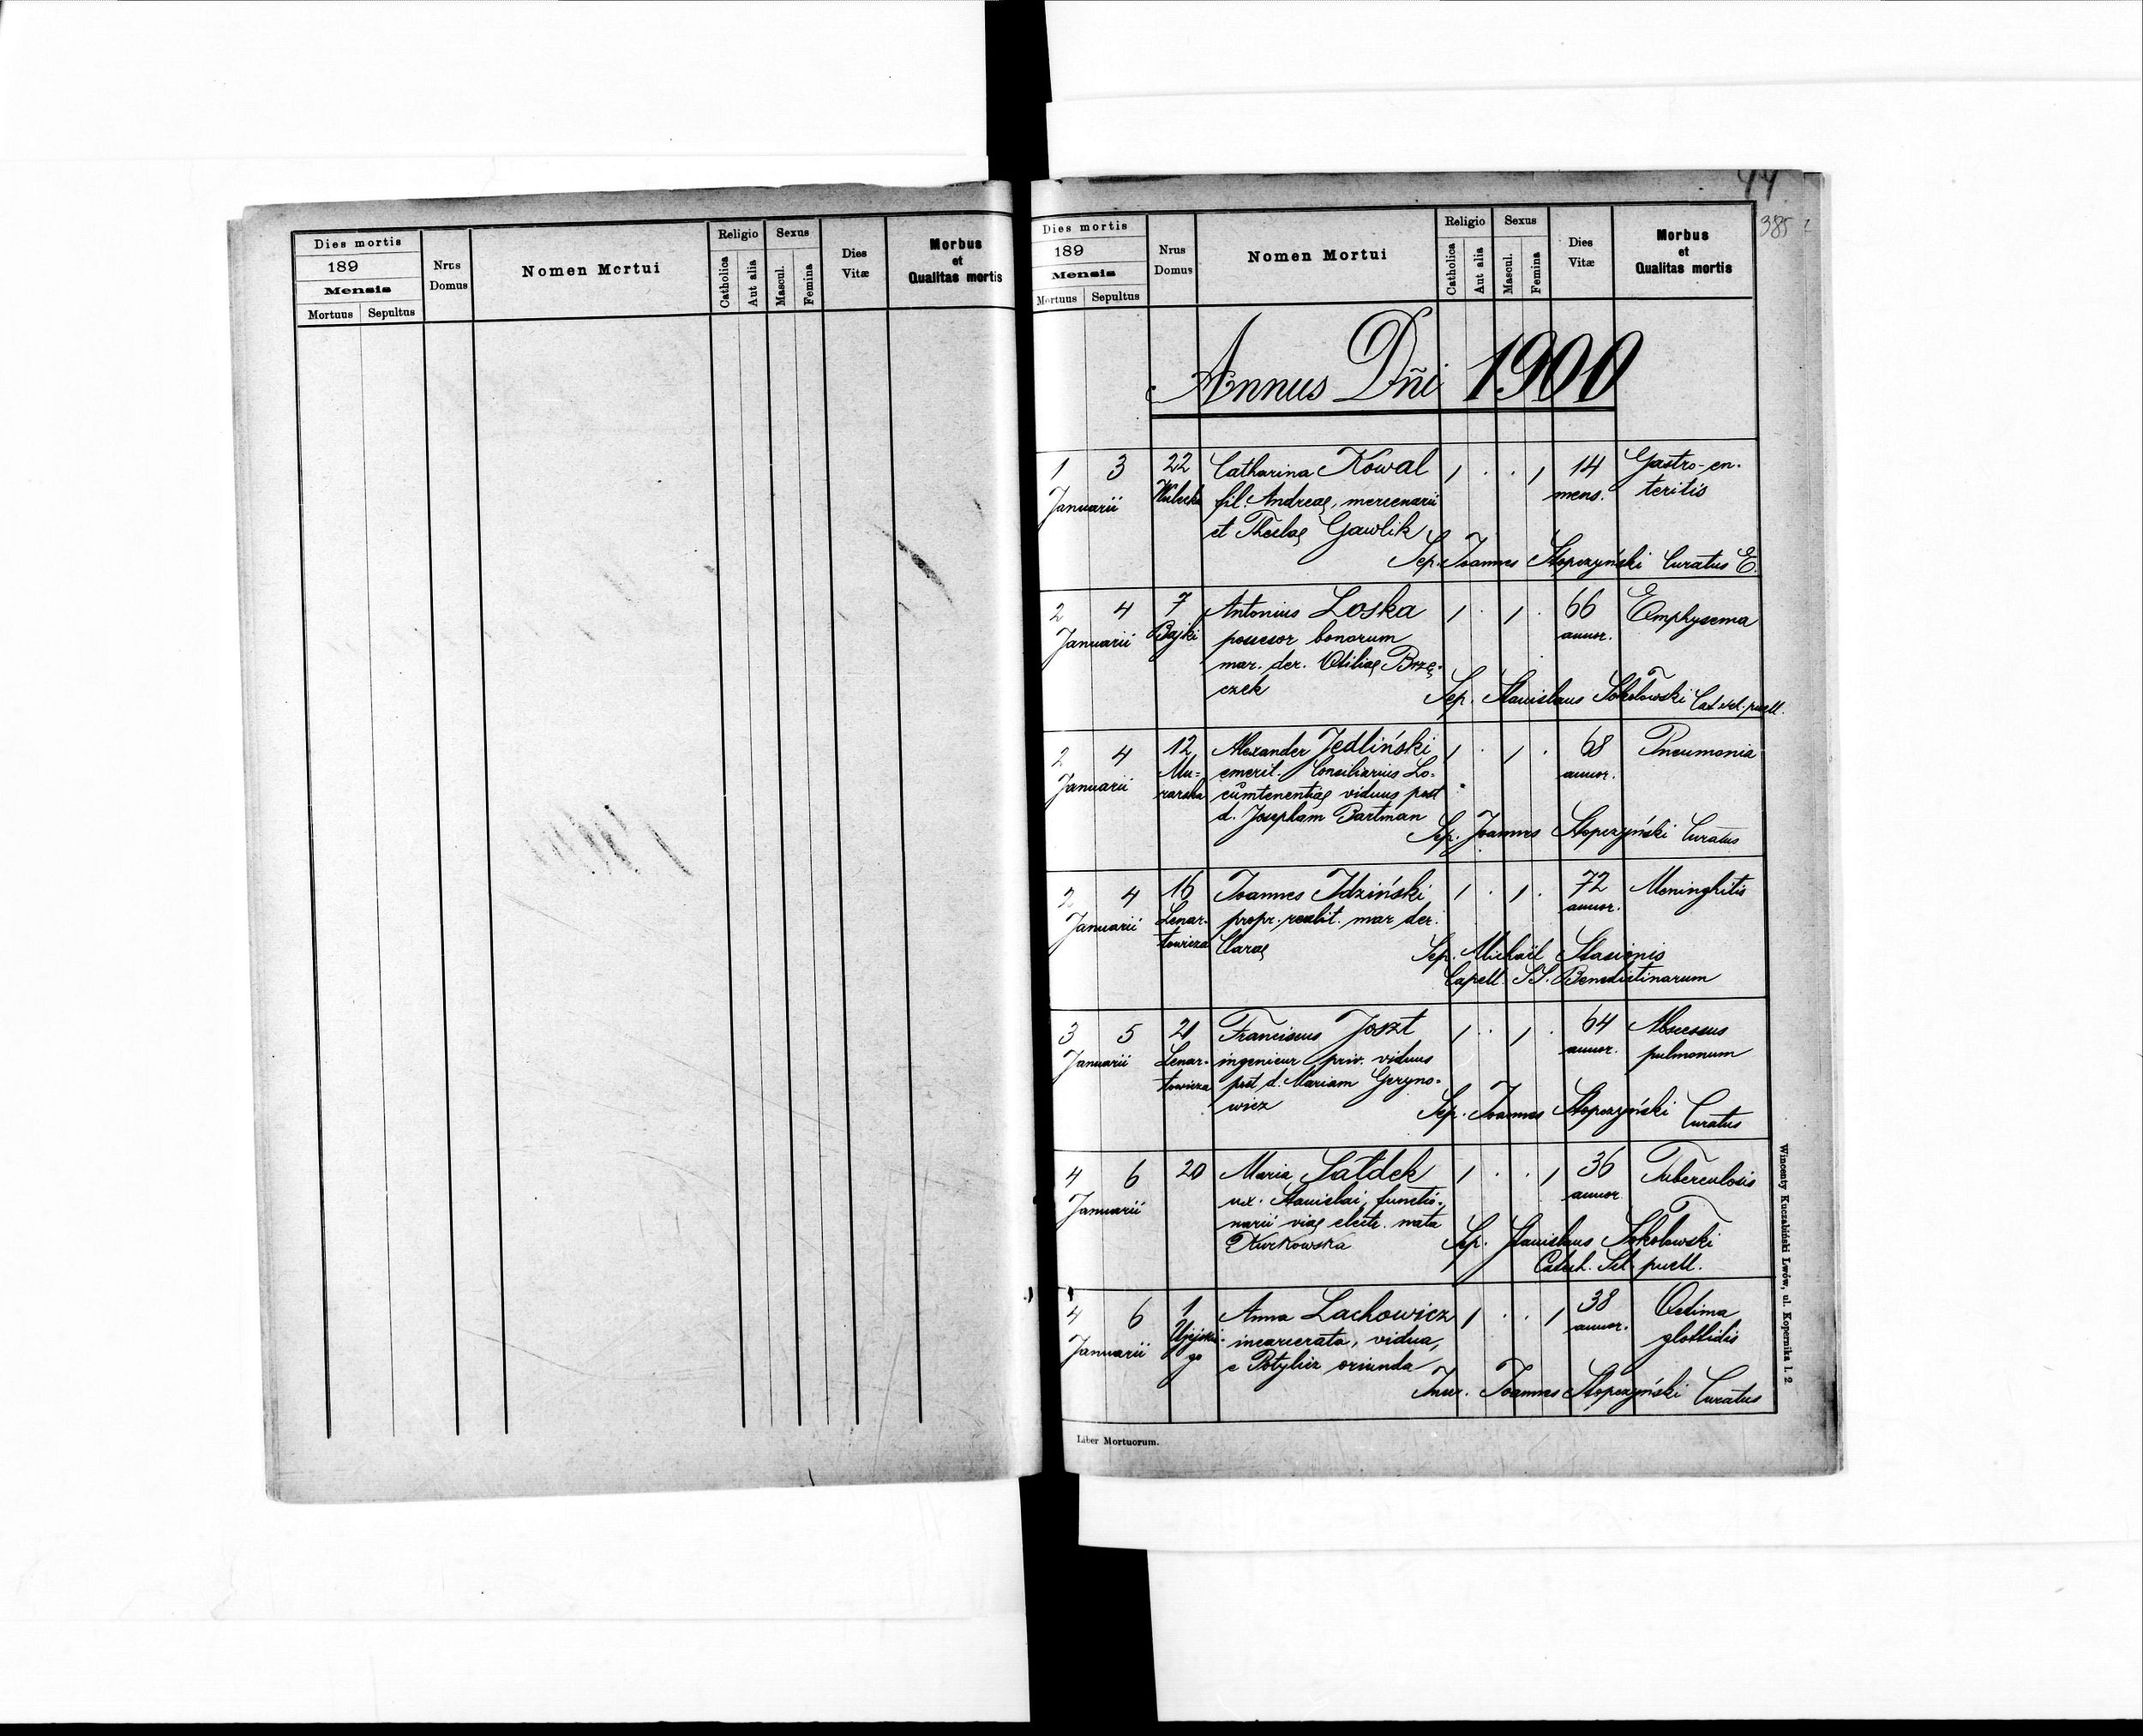 Dies mortis
189
Mensis
Mortuus Sepultus
Nrus
Domus
Nomen Mortui
Religio
Catholica
Aut alia
Sexus
Mascul.
Femina
Dies
Vitæ
Morbus
et
Qualitas mortis
385
Dies mortis
189
Mensis
Mortuus Sepultus
Nrus
Domus
Nomen Mortui
Religio
Catholica
Aut alia
Sexus
Mascul.
Femina
Dies
Vitæ
Morbus
et
Qualitas mortis
Annus Dñi 1900
1 3 22 Catharina Kowal 1 . . 1 14 Gastro-en-
Januarii Wulecka fil. Andreae, mercenarii mens. teritis
et Theclae Gawlik
Sep. Joannes Stopczyński Curatus E.
2 4 7 Antonius Loska 1 . 1 . 66 Emphysema
Januarii Bajki possesor bonorum annor.
mar. der. Otiliae Brzę-
czek
Sep. Stanislaus Sokołowski Cat. scl. puell.
2 4 12 Alexander Jedliński 1 . 1 . 68 Pneumonia
Januarii Mu- emerit. Consiliarius Lo- annor.
rarska cumtenentiae viduus post
d. Josepham Bartman
Sep. Joannes Stopczyński Curatus
2 4 16 Joannes Idziński 1 . 1 . 72 Meninghitis
Januarii Lenar- propr. realit. mar der. annor.
towicza Clarae
Sep. Michaël Stasionis
Capell. SS. Benedictinarum
3 5 21 Franciscus Joszt 1 . 1 . 64 Abscessus
Januarii Lenar- ingenieur priv. viduus annor. pulmonum
towicza post d. Mariam Geryno-
wicz
Sep. Joannes Stopczyński Curatus
4 6 20 Maria Sałdek 1 . . 1 36 Tuberculosis
Januarii ux. Stanislai, functio- annor.
narii viae electr. nata
Kurkowska
Sep. Stanislaus Sokołowski
Catech. Scl. puell.
4 6 1 Anna Lachowicz 1 . . 1 38 Oedima
Januarii Ujejskie- incarcerata, vidua, annor. glottidis
go e Potylicz oriunda
Joannes Stopczyński Curatus
Liber Mortuorum.
Wincenty Kuczabiński Lwów, ul. Kopernika l. 2